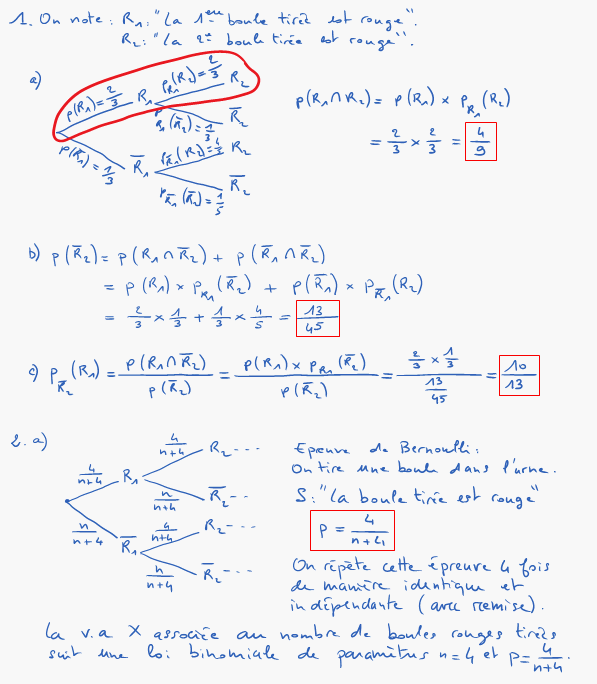 1. On note : R₁ : "La 1ère boule tirée est rouge".
R₂ : "La 2e boule tirée est rouge".
a)
p(R₁) = 2/3 R₁ p_R₁(R₂) = 2/3 R₂
p_R₁(R̅₂) = 1/3 R̅₂
p(R̅₁) = 1/3 R̅₁ p_R̅₁(R₂) = 4/5 R₂
p_R̅₁(R̅₂) = 1/5 R̅₂
p(R₁ ∩ R₂) = p(R₁) × p_R₁(R₂)
= 2/3 × 2/3 = 4/9
b) p(R̅₂) = p(R₁ ∩ R̅₂) + p(R̅₁ ∩ R̅₂)
= p(R₁) × p_R₁(R̅₂) + p(R̅₁) × p_R̅₁(R₂)
= 2/3 × 1/3 + 1/3 × 4/5 = 13/45
c) p_R̅₂(R₁) = p(R₁ ∩ R̅₂)/p(R̅₂) = p(R₁) × p_R₁(R̅₂)/p(R̅₂) = (2/3 × 1/3)/(13/45) = 10/13
2. a)
4/(n+4) R₁ 4/(n+4) R₂ ---
n/(n+4) R̅₂ --
n/(n+4) R̅₁ 4/(n+4) R₂ ---
n/(n+4) R̅₂ ---
Epreuve de Bernoulli :
On tire une boule dans l'urne.
S : "La boule tirée est rouge"
p = 4/(n+4)
On répète cette épreuve 4 fois
de manière identique et
indépendante (avec remise).
La v.a X associée au nombre de boules rouges tirées
suit une loi binomiale de paramètres n = 4 et p = 4/(n+4).